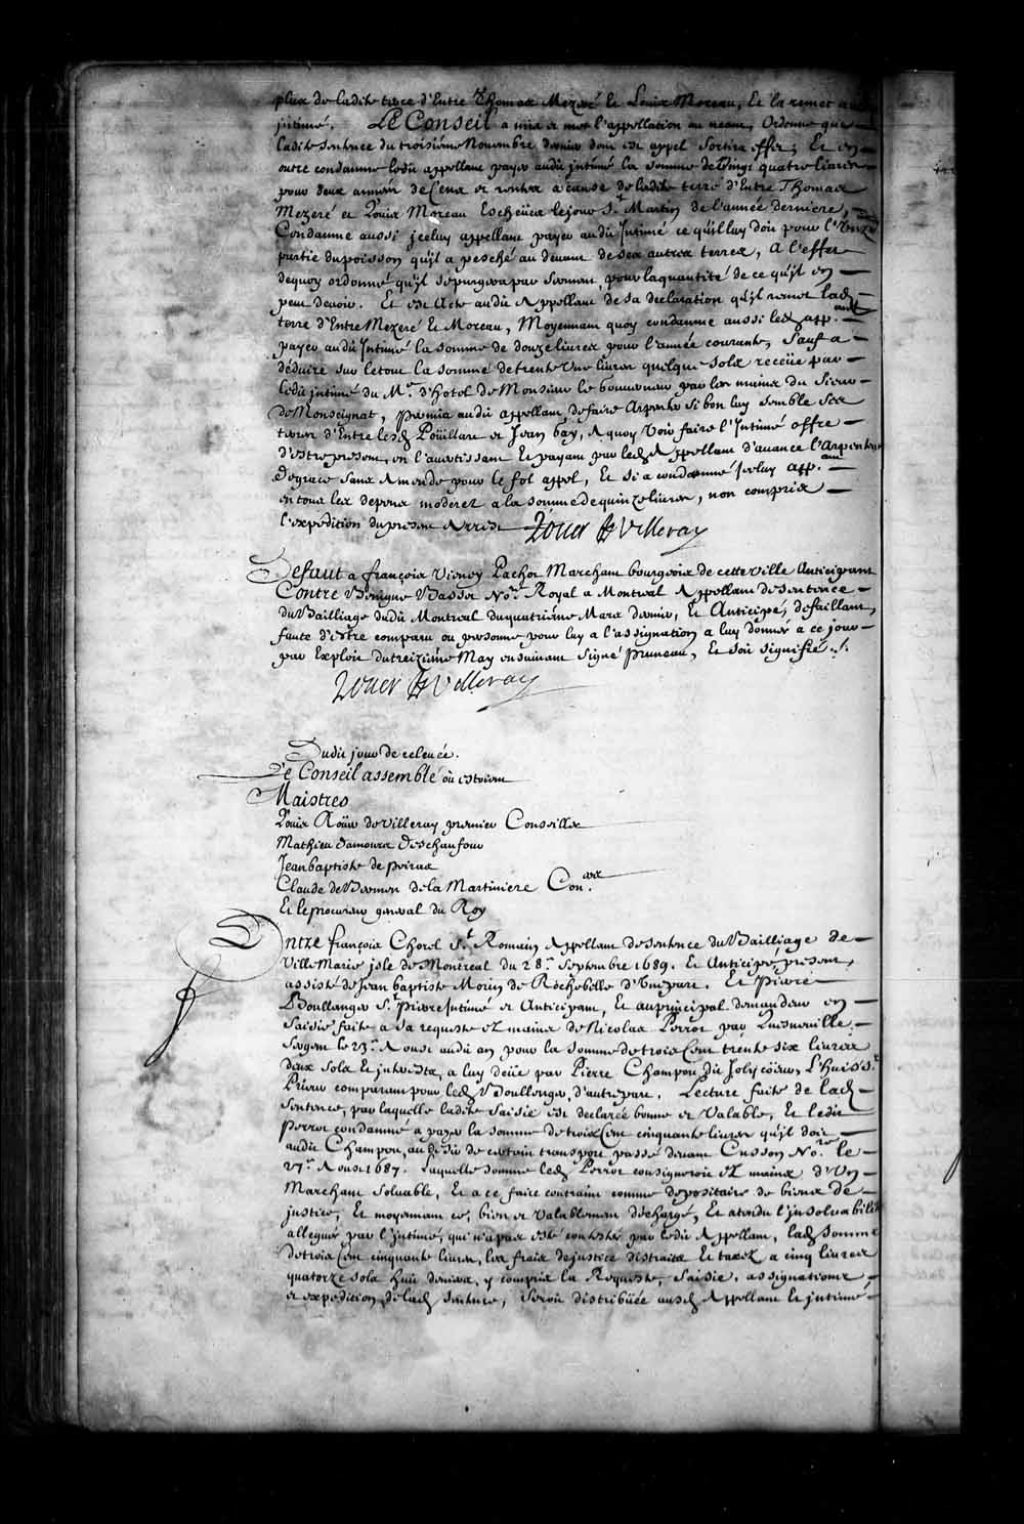 plus de ladite terre d'Entre Thomas Mezeré et Louis Moreau, Et la remet au
jntimé. LE Conseil a mis et met l'appellation au neant, Ordonne que
ladite sentence du troisiéme Nouembre dernier dont est appel sortira effet, Et en
outre condamne ledit appellant payer audit jntimé la somme de Vingt quatre liures
pour deux années de Cens et rentes a cause de ladite terre d'Entre Thomas
Mezeré et Louis Moreau Escheües le jour St Martin de l'année derniere,
Condamne aussi jceluy appellant payer audit Jntimé ce qu'il luy doit pour l'Onze
partie du poisson qu'il a pesché au deuant de ses autres terres, A l'effet
dequoy ordonné qu'il se purgera par serment, pour la quantité de ce qu'il en
peut deuoir. Et est Acte audit Appellant de sa declaration qu'il remet lad
terre d'Entre Mezeré Et Moreau, Moyennant quoy condamne aussi led app.
payer audit Jntimé la somme de douze liures pour l'année courante, Sauf a
déduire sur le tout la somme de trente Une liures quelques sols receüe par
ledit jntimé du Me d'Hotel de Monsieur le Gouuerneur par les mains du Sieur
de Monseignat, permis audit appellant de faire Arpenter si bon luy semble ses
terres d'Entre lesd Poüillart et Jean Gay, A quoy Voir faire l'Jntimé offre
d'estre present, en l'auertissant Et payant par led Appellant d'auance l'Arpenteur
De grace sans Amende pour le fol appel, Et si a condamné jceluy app.
en tous les depens moderez a la somme de quinze liures, non compris
l'expédition du present Arrest Roüer de Villeray
Defaut a françois Vienay Pachot Marchant bourgeois de cette Ville Anticipant
Contre Benigne Basset Nore Royal a Montreal Appellant de sentence
du Bailliage dudit Montreal du quatriéme Mars dernier, Et Anticipé, defaillant,
faute d'estre comparu ou personne pour luy a l'assignation a luy donnée a ce jour
par Exploit du treiziéme May ensuiuant Signé Pruneau, Et soit signifié ./.
Roüer de Villeray
Dudit jour de releuée.
Le Conseil assemblé où estoient
Maistres
Louis Roüer de Villeray premier Conseiller
Mathieu Damours Deschaufour
Jean baptiste de Peiras
Claude de Bermen de la Martiniere Con.ers
Et le procureur general du Roy
Entre françois Chorel St Romain Appellant de sentence du Bailliage de
Ville Marie jsle de Montreal du 28e Septembre 1689. Et Anticipé, present,
assisté de Jean baptiste Morin de Rochebelle d'Vne part. Et Pierre
Boullanger St Pierre Jntimé et Anticipant, Et au principal demandeur en
Saisie faite a sa requeste ez mains de Nicolas Perrot par
Sergent le 23e Aoust audit an pour la somme de trois Cent trente six liures
deux sols Et jnterests, a luy deüe par Pierre Champou dit Jolycoeur, L'Huissr
Prieur comparant pour led Boullenger, d'autre part. Lecture faite de lad
sentence, par laquelle ladite saisie est declarée bonne et Valable, Et ledit
Perrot condamné a payer la somme de trois Cent cinquante liures qu'il doit
audit Champou, au desir de certain transport passé deuant Cusson Nore le
27e Aoust 1687. laquelle somme led Perrot consigneroit ez mains d'Vn
Marchant soluable, Et a ce faire contraint comme depositaire de biens de
justice, Et moyennant ce, bien et Valablement déchargé, Et atendu l'jnsolvabilité
alleguée par l'jntimé, qui n'a pas esté contestée par ledit Appellant, lad somme
de trois Cent cinquante liures, les frais de justice distraits Et taxez a cinq liures
quatorze sols huit deniers, y compris la Requeste, Saisie, assignations
et expedition de lad sentence, seroit distribüée ausd Appellant Et jntimé